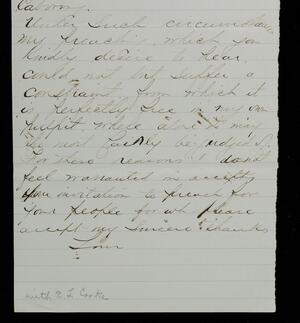 labory.
Under such circumstances
my preach'g, which you
kindly desire to hear
could not but suffer a
constraint from which it
is perfectly free in my own
pulpit where alone it may
be most fairly be judged of.
For these reasons I do not
feel warranted in accept'g
your invitation to preach for
your people for wh please
accept my sincere thanks
Your
with E L Cooke